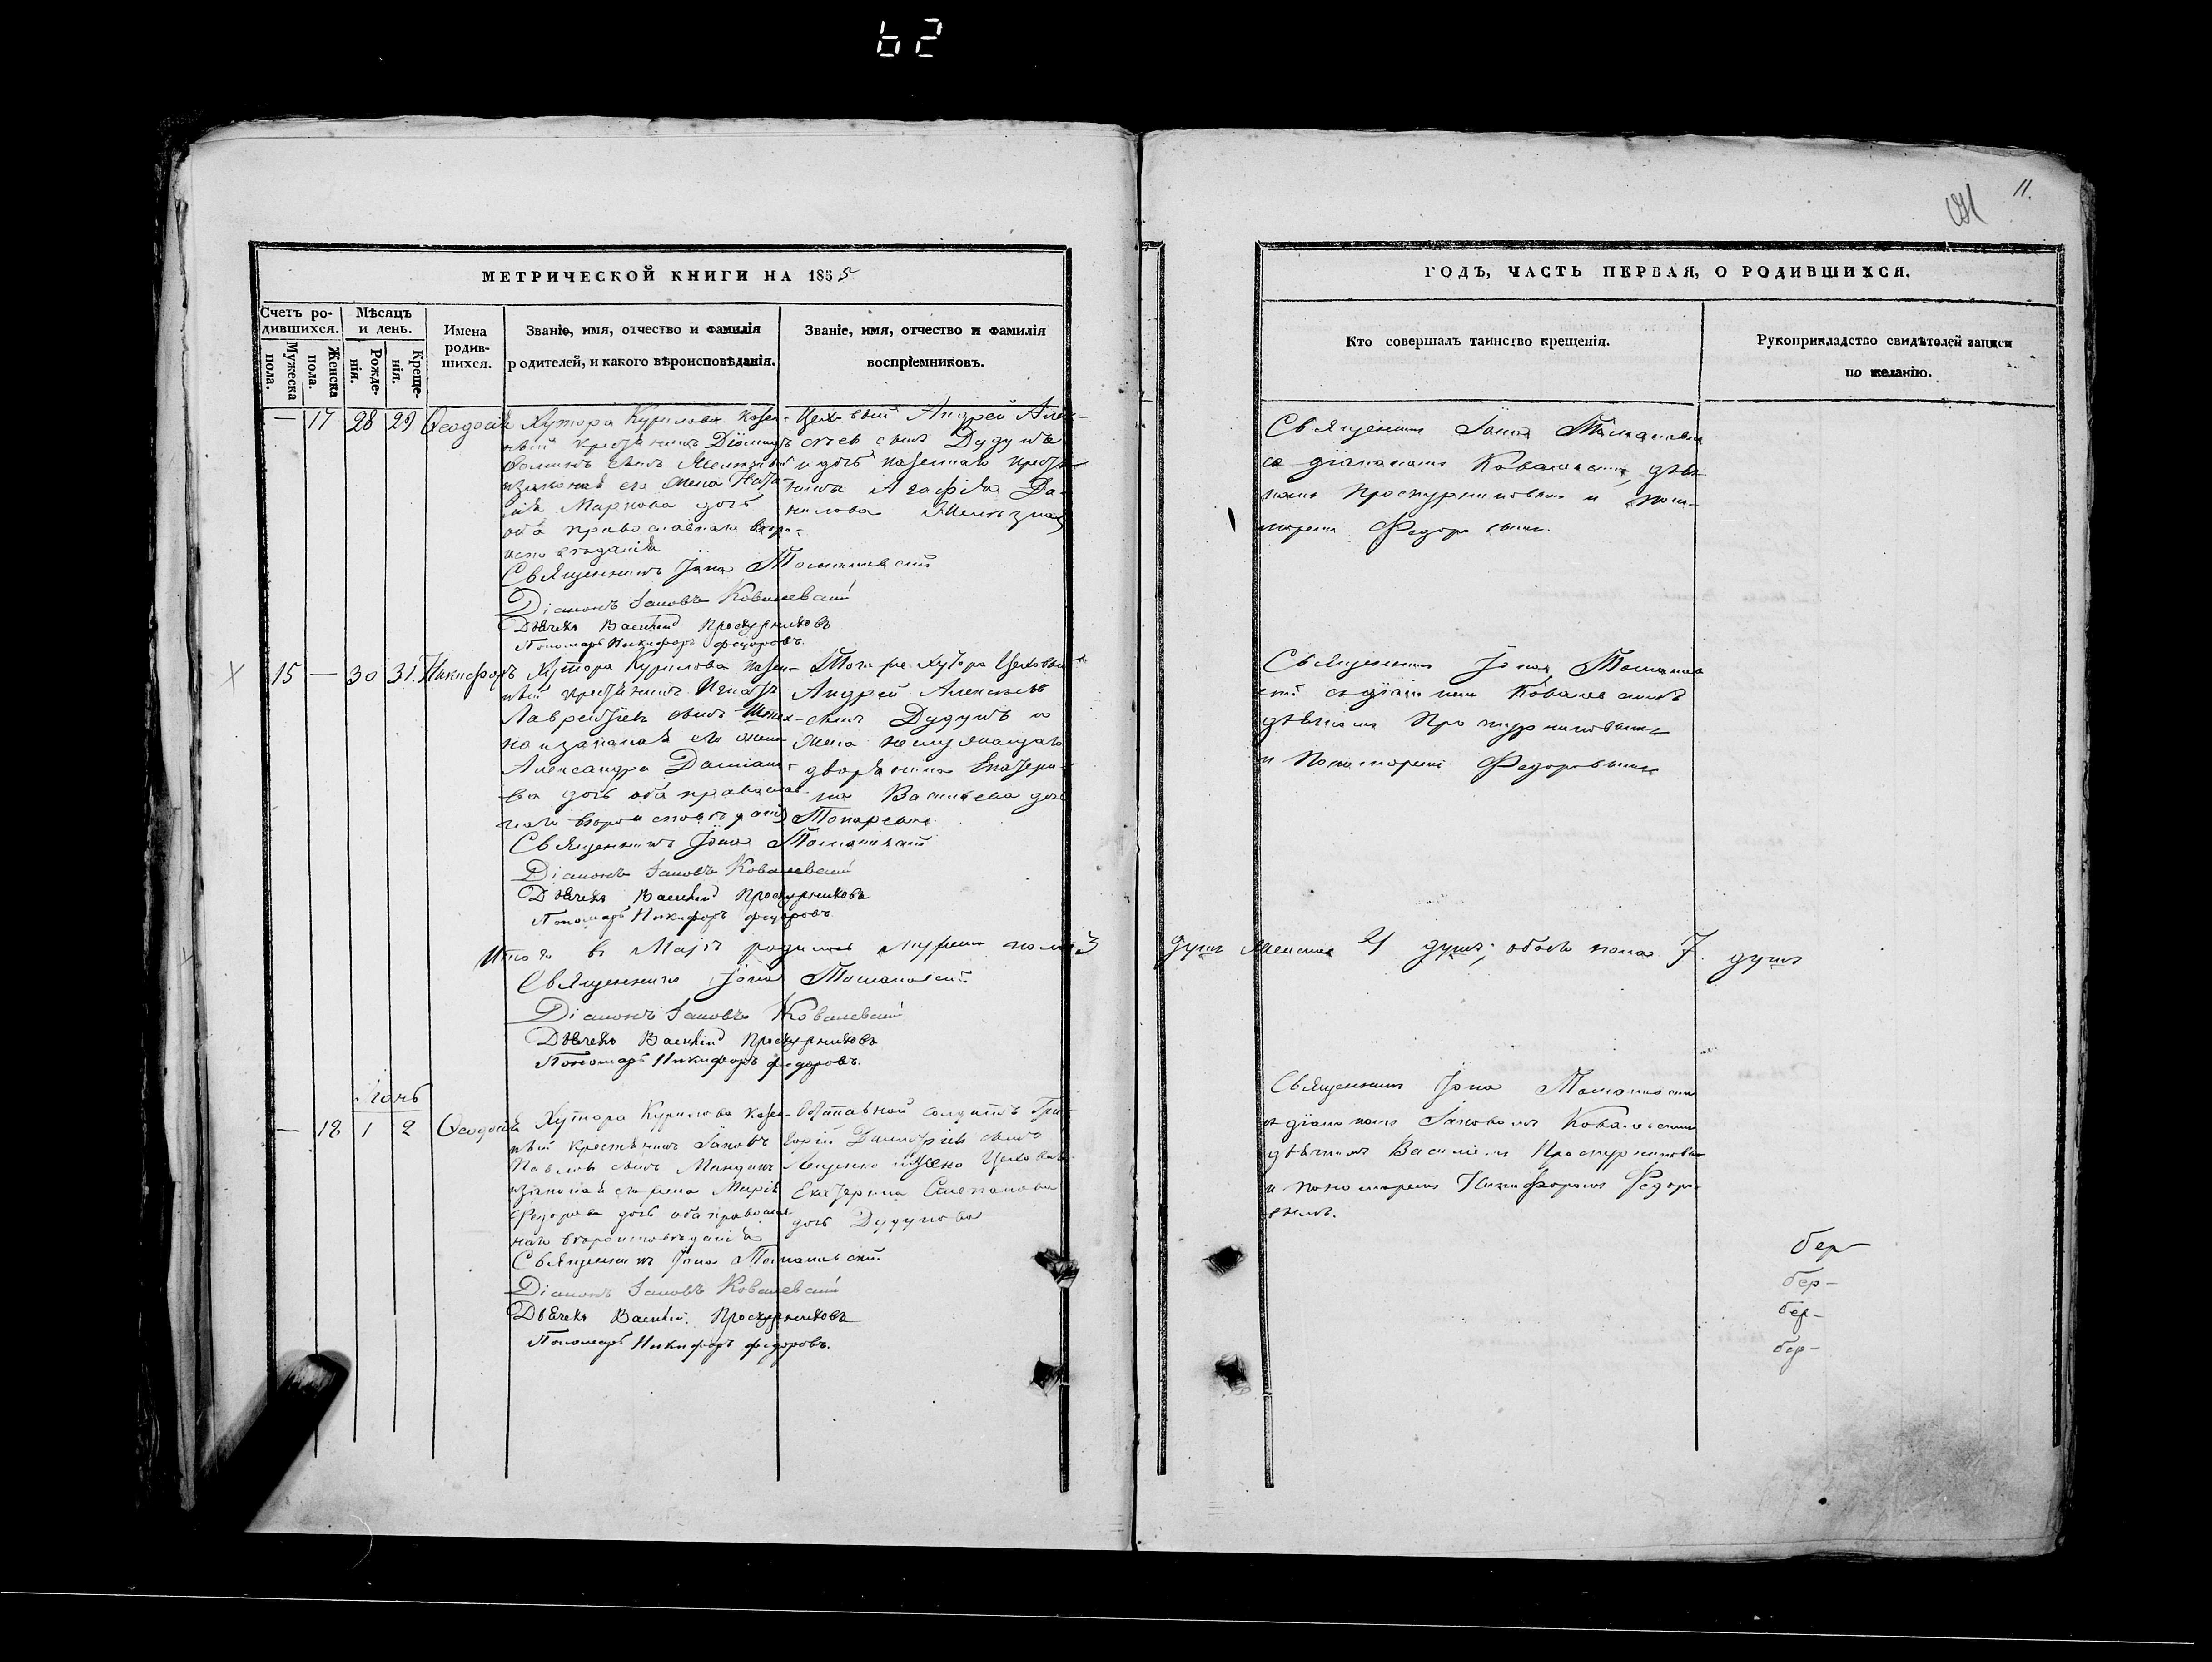 62
11.
МЕТРИЧЕСКОЙ КНИГИ НА 1855
ГОДЪ, ЧАСТЬ ПЕРВАЯ, О РОДИВШИХСЯ.
Счетъ ро-
дившихся.
Мужеска
пола.
Женска
пола.
Мѣсяцъ
и день.
Рожде-
нія.
Креще-
нія.
Имена
родив-
шихся.
Званіе, имя, отчество и фамилія
родителей, и какого вѣроисповѣданія.
Званіе, имя, отчество и фамилія
воспріемниковъ.
Кто совершалъ таинство крещенія.
Рукоприкладство свидѣтелей записи
по желанію.
— 17 28 29 Ѳеодосія
Хутора Курилова казен-
ный крестьянинъ
сынъ
и законная его жена Ната-
лія Маркова дочь
оба православнаго вѣро-
исповѣданія
Священникъ Іона Томашевскій
Діаконъ Іаковъ Ковалевскій
Дьячекъ Василій Проскурниковъ
Пономарь Никифоръ Федоровъ.
Цеховый Андрей Алек-
сѣевъ сынъ Дудукъ
и дочь казеннаго крестья-
нина Агафія Да-
нилова
Священникъ Іона Томашевскій
съ діакономъ Ковалевскимъ, дьяч-
комъ Проскурниковымъ и поно-
маремъ Федоровымъ.
15 — 30 31. Никифоръ
Хутора Курилова казен-
ный крестьянинъ Игнатъ
Лаврентіевъ сынъ
и законная его жена
Александра Даміано-
ва дочь оба православ-
наго вѣроисповѣданія
Священникъ Іона Томашевскій
Діаконъ Іаковъ Ковалевскій
Дьячекъ Василій Проскурниковъ
Пономарь Никифоръ Федоровъ
Того же хутора Цеховый
Андрей Алексѣевъ
сынъ Дудукъ и
жена
дворянина Екатери-
на Васильева дочь
Священникъ Іона Томашев
скій съ діакономъ Ковалевскимъ
дьячкомъ Проскурниковымъ
и Пономаремъ Федоровымъ
Итого въ Маѣ родилось мужеска пола 3 душъ женска 4 душъ; обоего пола 7. душъ
Священникъ Іона Томашевскій
Діаконъ Іаковъ Ковалевскій
Дьячекъ Василій Проскурниковъ
Пономарь Никифоръ Федоровъ.
Іюнь
— 18 1 2 Ѳеодосія
Хутора Курилова казен-
ный крестьянинъ Іаковъ
Павловъ сынъ
и законная его жена Марія
Федорова дочь оба православ-
наго вѣроисповѣданія
Священникъ Іона Томашевскій
Діаконъ Іаковъ Ковалевскій
Дьячекъ Василій Проскурниковъ
Пономарь Никифоръ Федоровъ.
Отставной солдатъ Гри-
горій Димитріевъ сынъ
Екатерина Степанова
дочь Дудукова
Священникъ Іона Томашевскій
съ діакономъ Іаковомъ Ковалевскимъ
дьячкомъ Василіемъ Проскурниковымъ
и пономаремъ Никифоромъ Федоро-
вымъ.